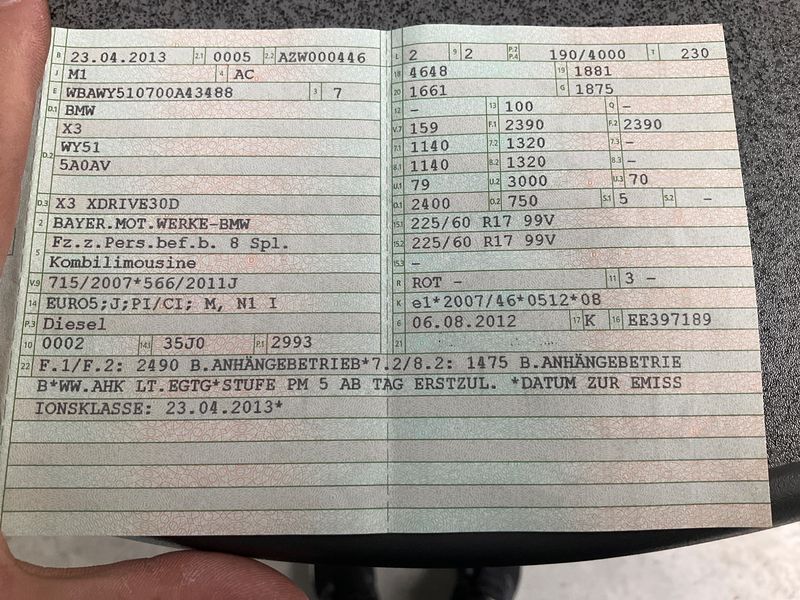 B 23.04.2013 2.1 0005 2.2 AZW000446
J M1 4 AC
E WBAWY510700A43488 3 7
D.1 BMW
X3
D.2 WY51
5A0AV
D.3 X3 XDRIVE30D
2 BAYER.MOT.WERKE-BMW
5 Fz.z.Pers.bef.b. 8 Spl.
Kombilimousine
V.9 715/2007*566/2011J
14 EURO5;J;PI/CI; M, N1 I
P.3 Diesel
10 0002 14.1 35J0 P.1 2993
L 2 9 2 P.2 P.4 190/4000 T 230
18 4648 19 1881
20 1661 G 1875
12 – 13 100 Q –
V.7 159 F.1 2390 F.2 2390
7.1 1140 7.2 1320 7.3 –
8.1 1140 8.2 1320 8.3 –
U.1 79 U.2 3000 U.3 70
O.1 2400 O.2 750 S.1 5 S.2 –
15.1 225/60 R17 99V
15.2 225/60 R17 99V
15.3 –
R ROT – 11 3 –
K e1*2007/46*0512*08
6 06.08.2012 17 K 16 EE397189
21
22 F.1/F.2: 2490 B.ANHÄNGEBETRIEB*7.2/8.2: 1475 B.ANHÄNGEBETRIE
B*WW.AHK LT.EGTG*STUFE PM 5 AB TAG ERSTZUL. *DATUM ZUR EMISS
IONSKLASSE: 23.04.2013*